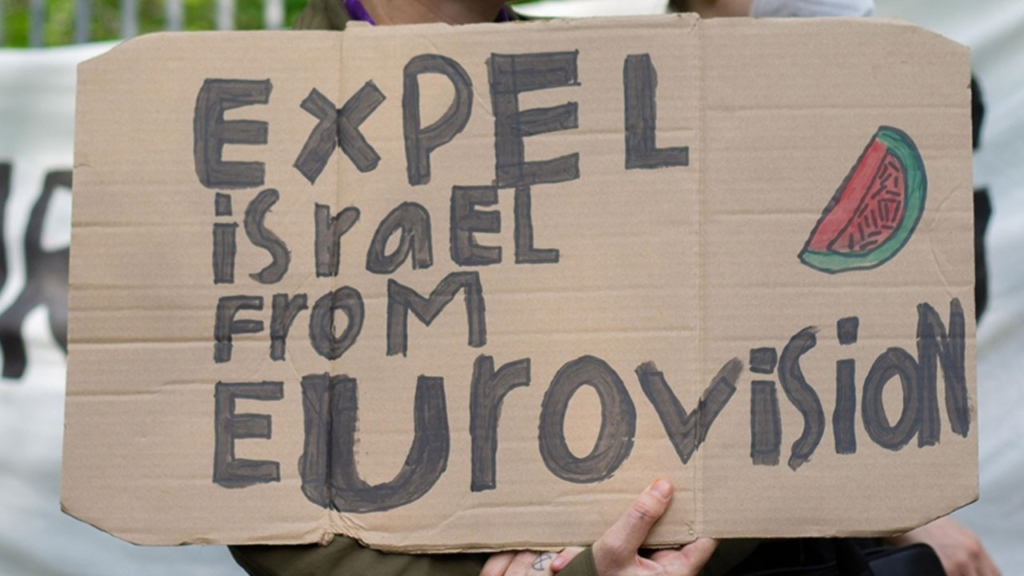 EXPEL
israEL
FroM
EUrovisioN